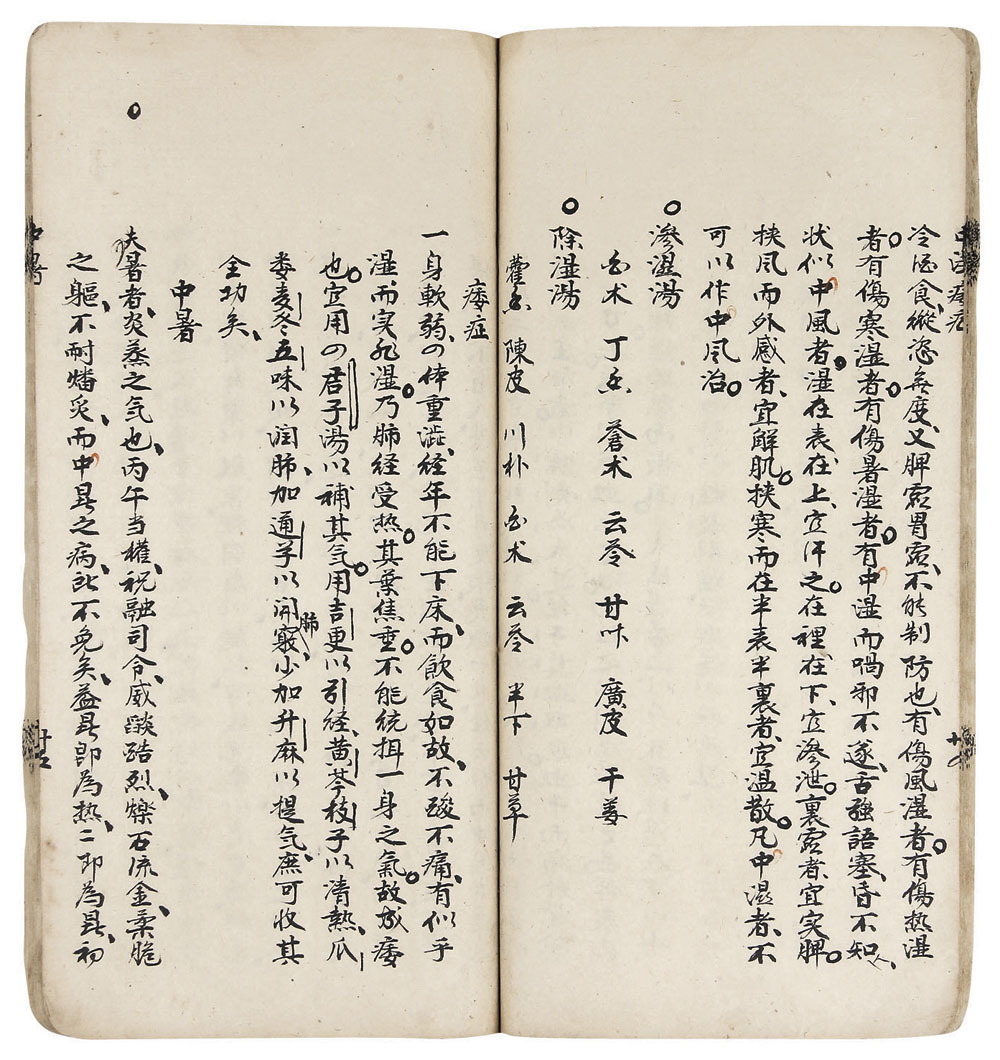 冷酒食、縱恣無度、又脾虛胃虛、不能制防也、有傷風濕者。有傷热濕
者。有傷寒濕者。有傷暑濕者。有中濕而喎邪不遂、舌強語塞、昏不知人、
状似中風者。濕在表在上、宜汗之。在裡在下、宜滲泄。裏虛者、宜实脾。
挟风而外感者、宜解肌。挟寒而在半表半裏者、宜温散。凡中濕者、不
可以作中风治。
滲濕湯
白术 丁香 蒼术 云苓 甘草 廣皮 干姜
除湿湯
藿香 陳皮 川朴 白术 云苓 半下 甘草
痿症
一身軟弱、体重澁、経年不能下床、而飲食如故、不酸不痛、有似乎
濕、而实非濕。乃肺経受热。其葉焦垂。不能統摄一身之氣。故成痿
也。宜用四君子湯以補其气。用吉更以引経、黄芩枝子以清熱、瓜
委麦冬五味以润肺、加通草以開肺竅、少加升麻以提气、庶可收其
全功矣、
中暑
夫暑者、炎蒸之气也、丙午当權、祝融司令、威燄酷烈、爍石流金、柔脆
之軀、不耐燔炙、而中暑之病、所不免矣、益暑即為热、热即為暑、初
中暑